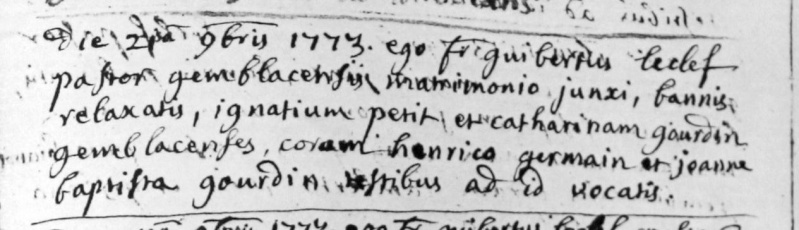 die 2da 9bris 1773. ego fr guibertus leclef
pastor gemblacensis matrimonio junxi, bannis
relaxatis, ignatium petit et catharinam gourdin
gemblacenses, coram henrico germain et joanne
baptista gourdin testibus ad id vocatis.
9bris 1773 ego fr